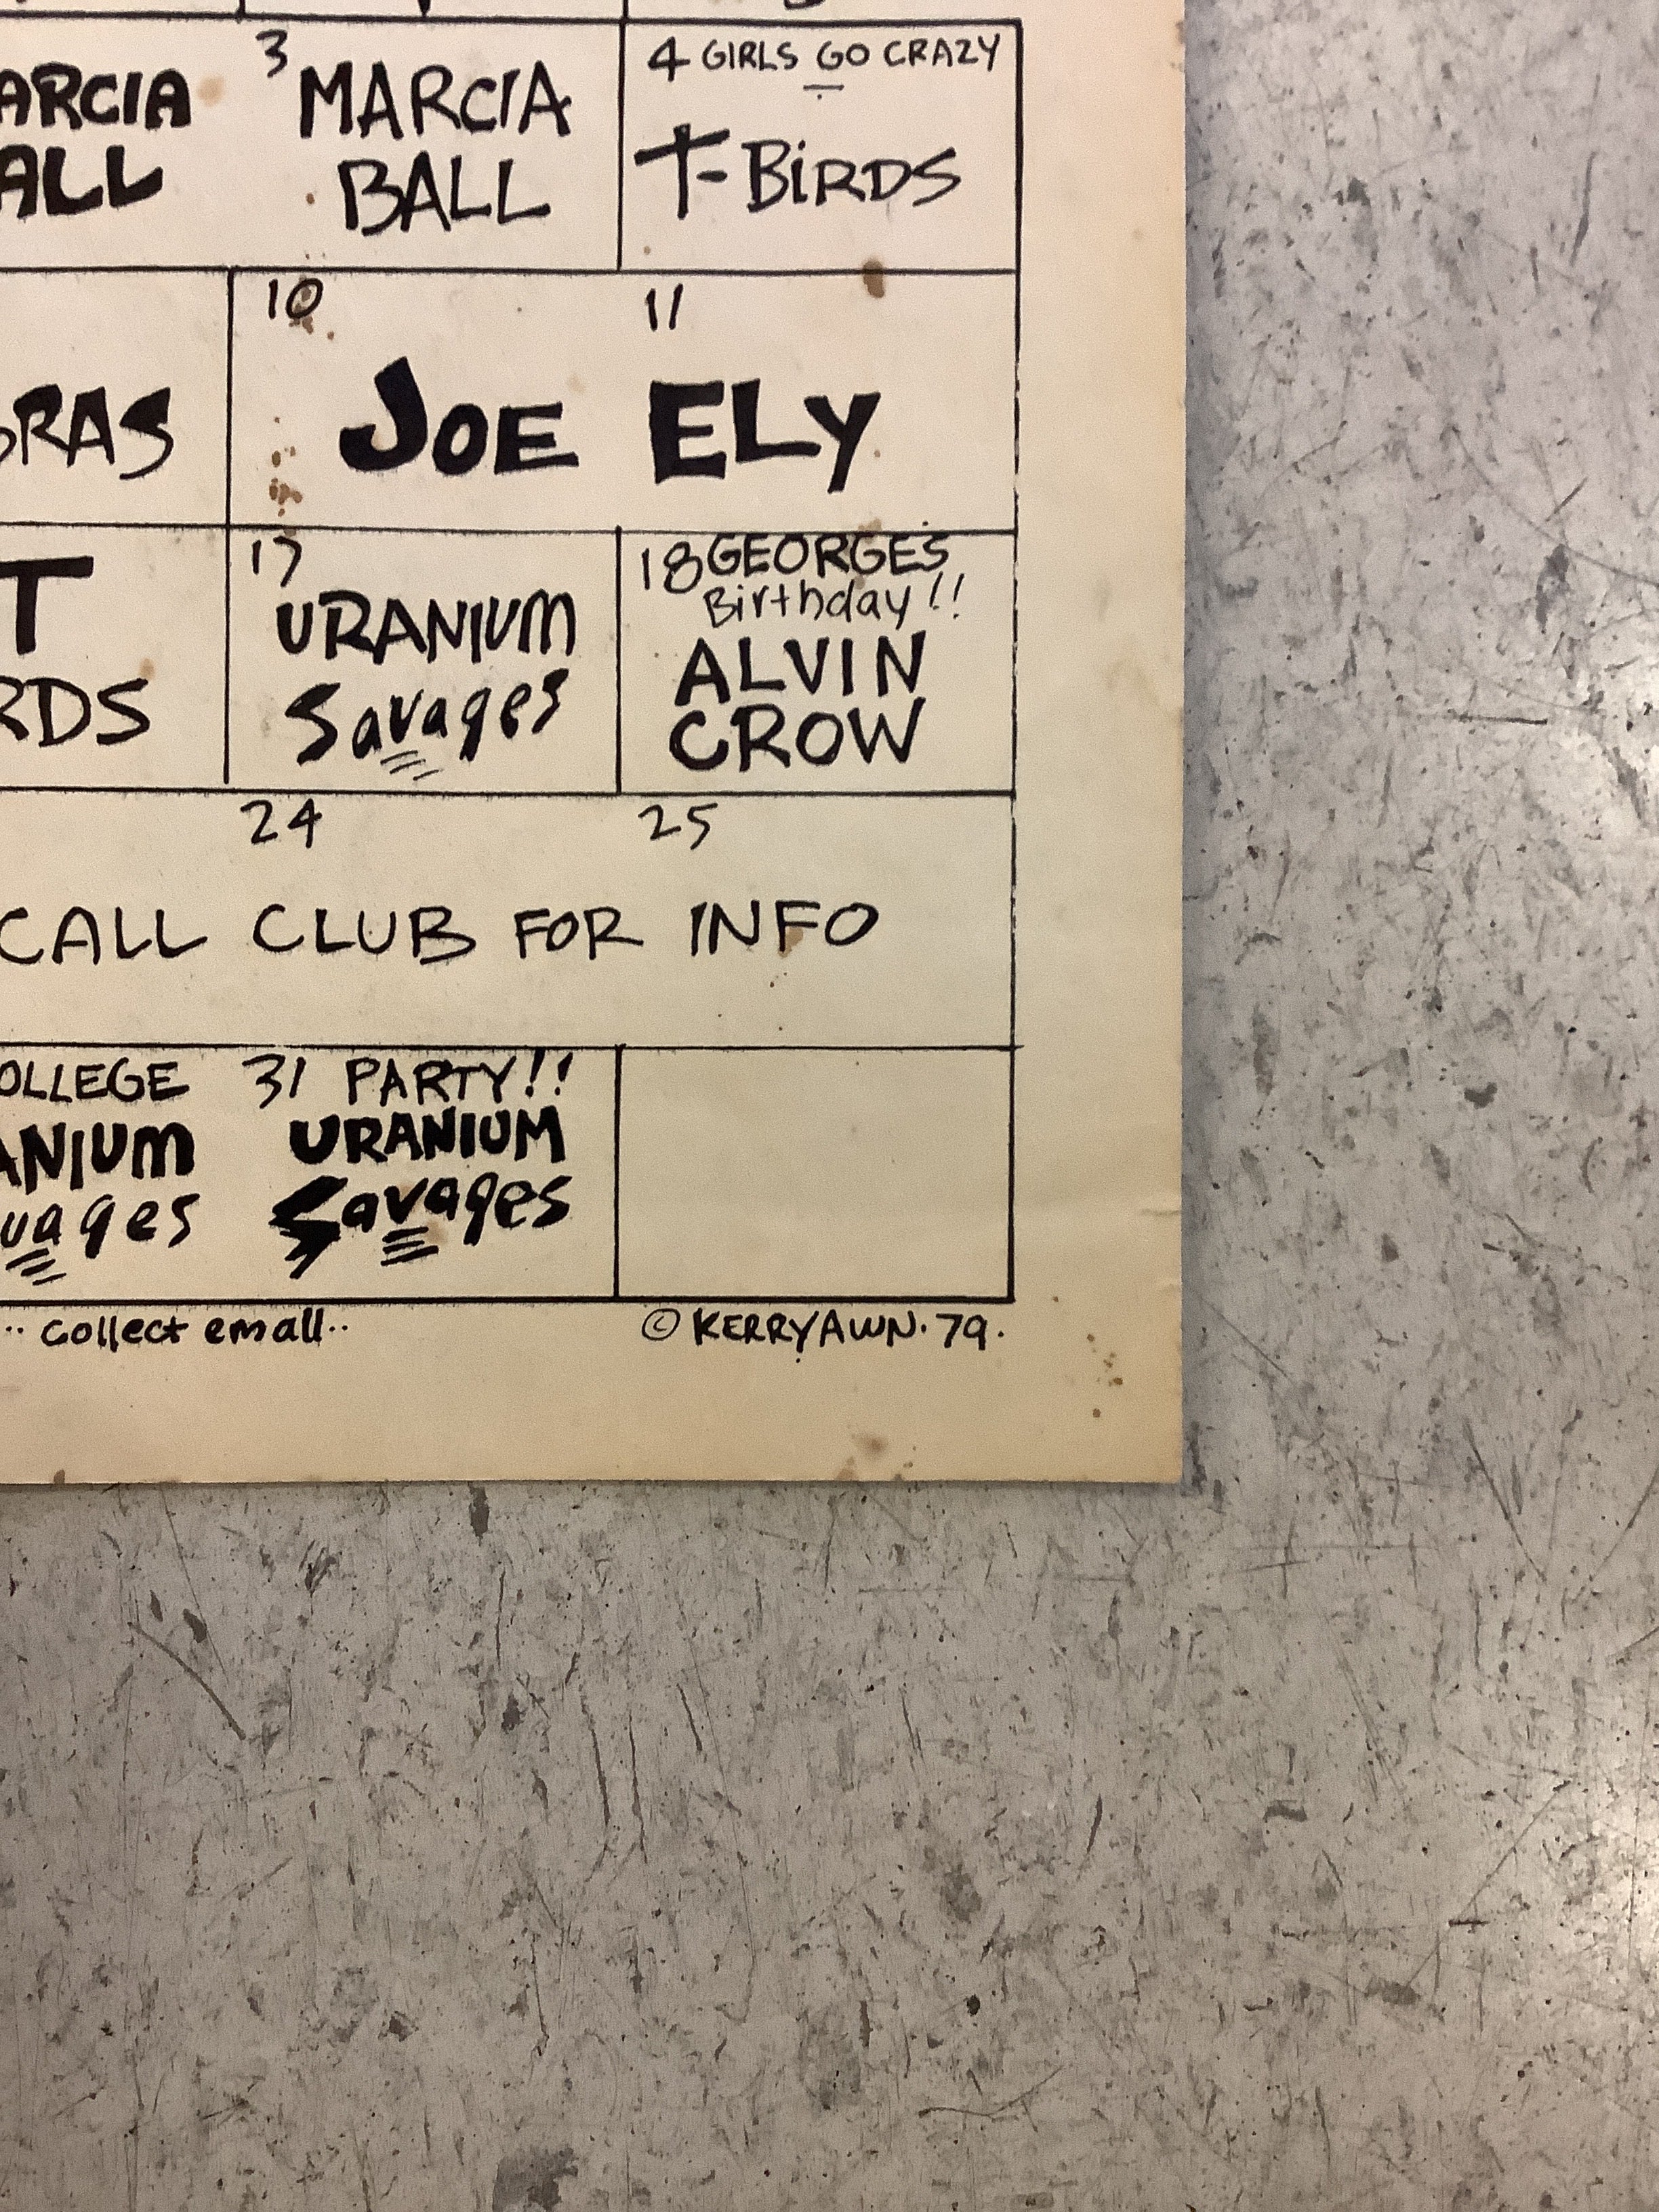 3
4 GIRLS GO CRAZY
ARCIA
ALL
MARCIA
BALL
T-BiRDS
10
11
BRAS
JOE ELY
T
RDS
17
URANIUM
Savages
18 GEORGES
Birthday!!
ALVIN
CROW
24
25
CALL CLUB FOR INFO
OLLEGE
ANIUM
vages
31 PARTY!!
URANIUM
Savages
·· collect em all··
© KERRY AWN·79.